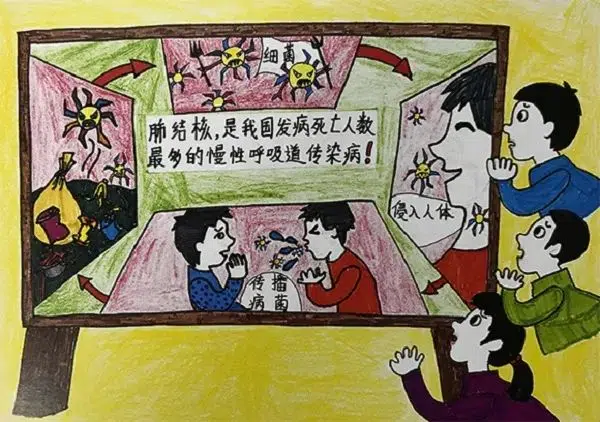 细菌
肺结核,是我国发病死亡人数
最多的慢性呼吸道传染病!
侵入人体
传播
病菌